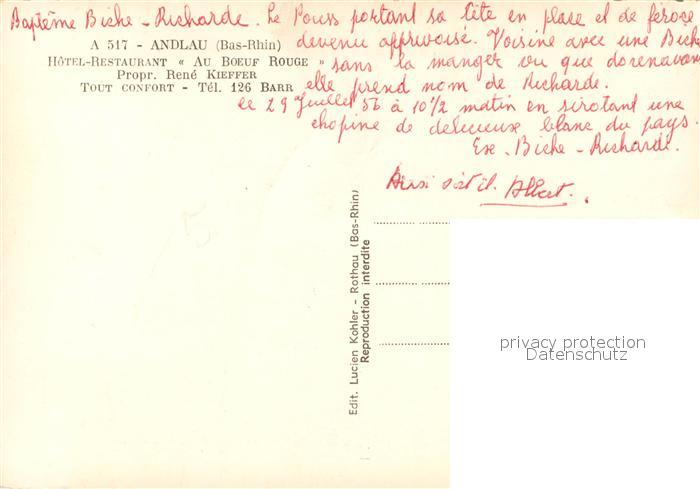 Baptême Biche - Richarde. Le Pouss portant sa tête en place et de féroce
A 517 - ANDLAU (Bas-Rhin)
devenu apprivoisé. Voisine avec une Biche
HÔTEL-RESTAURANT « AU BOEUF ROUGE »
sans la manger vu que dorenavant
Propr. René KIEFFER
TOUT CONFORT - Tél. 126 BARR
elle prend nom de Richarde.
le 29 Juillet 56 à 10 1/2 matin en sirotant une
chopine de delicieux blanc du pays.
Exe. Biche - Richarde.
Ainsi soit il. Albert.
Edit. Lucien Kohler - Rothau (Bas-Rhin)
Reproduction interdite
privacy protection
Datenschutz